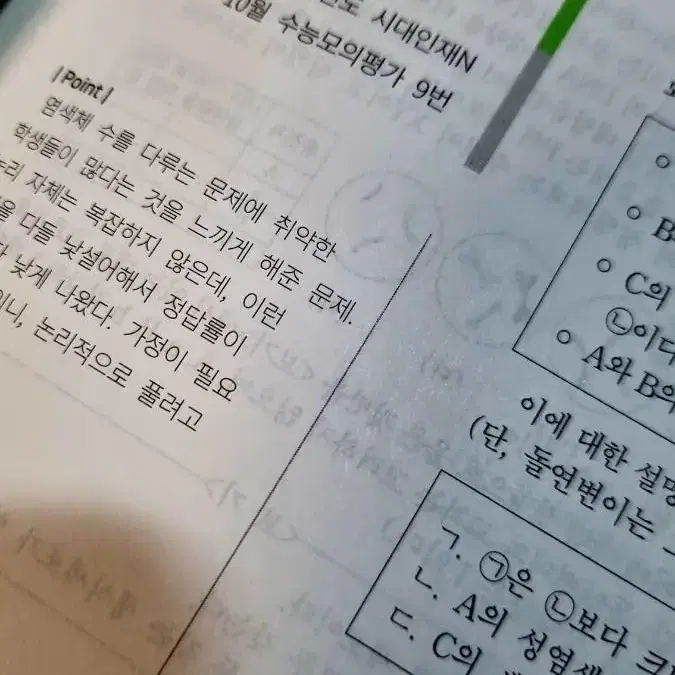 시대인재N
10월 수능모의평가 9번
|Point|
염색체 수를 다루는 문제에 취약한
학생들이 많다는 것을 느끼게 해준 문제.
자체는 복잡하지 않은데, 이런
다들 낯설어해서 정답률이
낮게 나왔다. 가정이 필요
논리적으로 풀려고
C의
㉡이다
A와 B의
이에 대한 설명
(단, 돌연변이는
ㄱ. ㉠은 ㉡보다
ㄴ. A의
ㄷ. C의